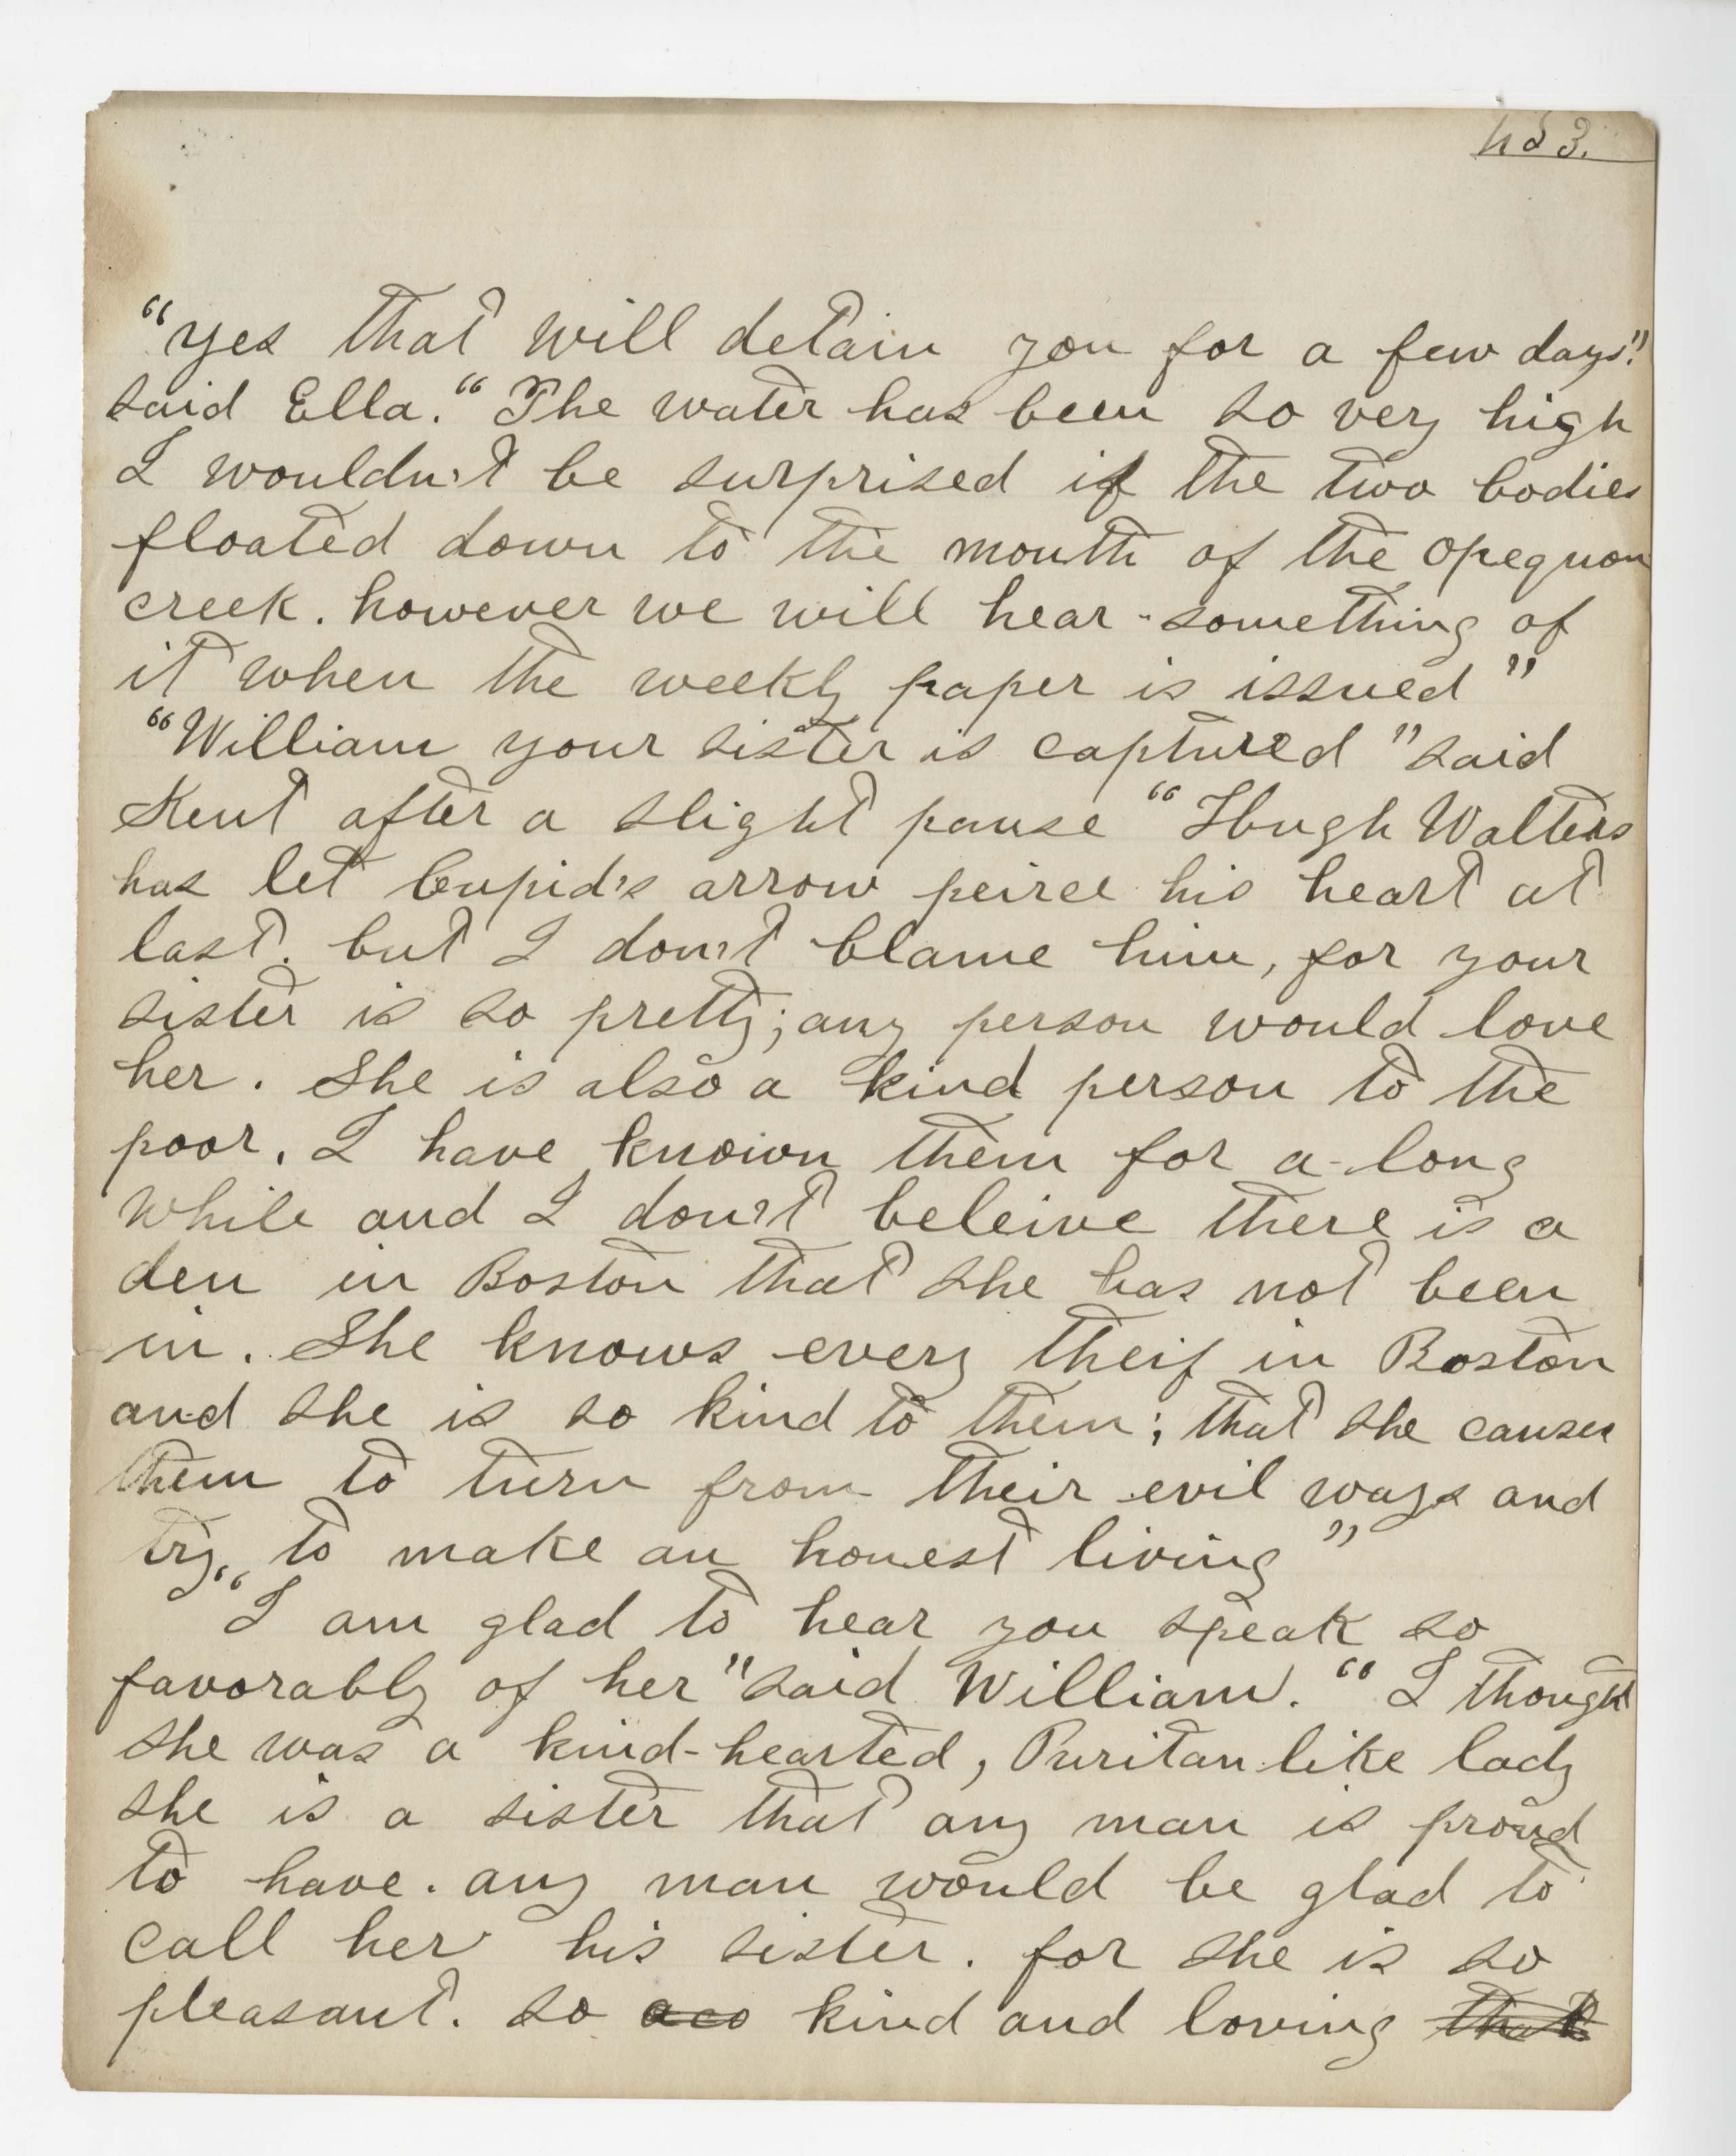 453.
"yes that will detain you for a few days."
said Ella. "The water has been so very high
I wouldn't be surprised if the two bodies
floated down to the mouth of the Opequon
creek. however we will hear something of
it when the weekly paper is issued"
"William your sister is captured" said
Kent after a slight pause "Hugh Walters
has let Cupid's arrow peirce his heart at
last. but I don't blame him, for your
sister is so pretty; any person would love
her. She is also a kind person to the
poor. I have known them for a long
while and I don't beleive there is a
den in Boston that she has not been
in. She knows every theif in Boston
and she is so kind to them; that she causes
them to turn from their evil ways and
try to make an honest living"
"I am glad to hear you speak so
favorably of her" said William. "I thought
she was a kind-hearted, Puritan like lady
she is a sister that any man is proud
to have. any man would be glad to
call her his sister. for she is so
pleasant. so kind and loving that